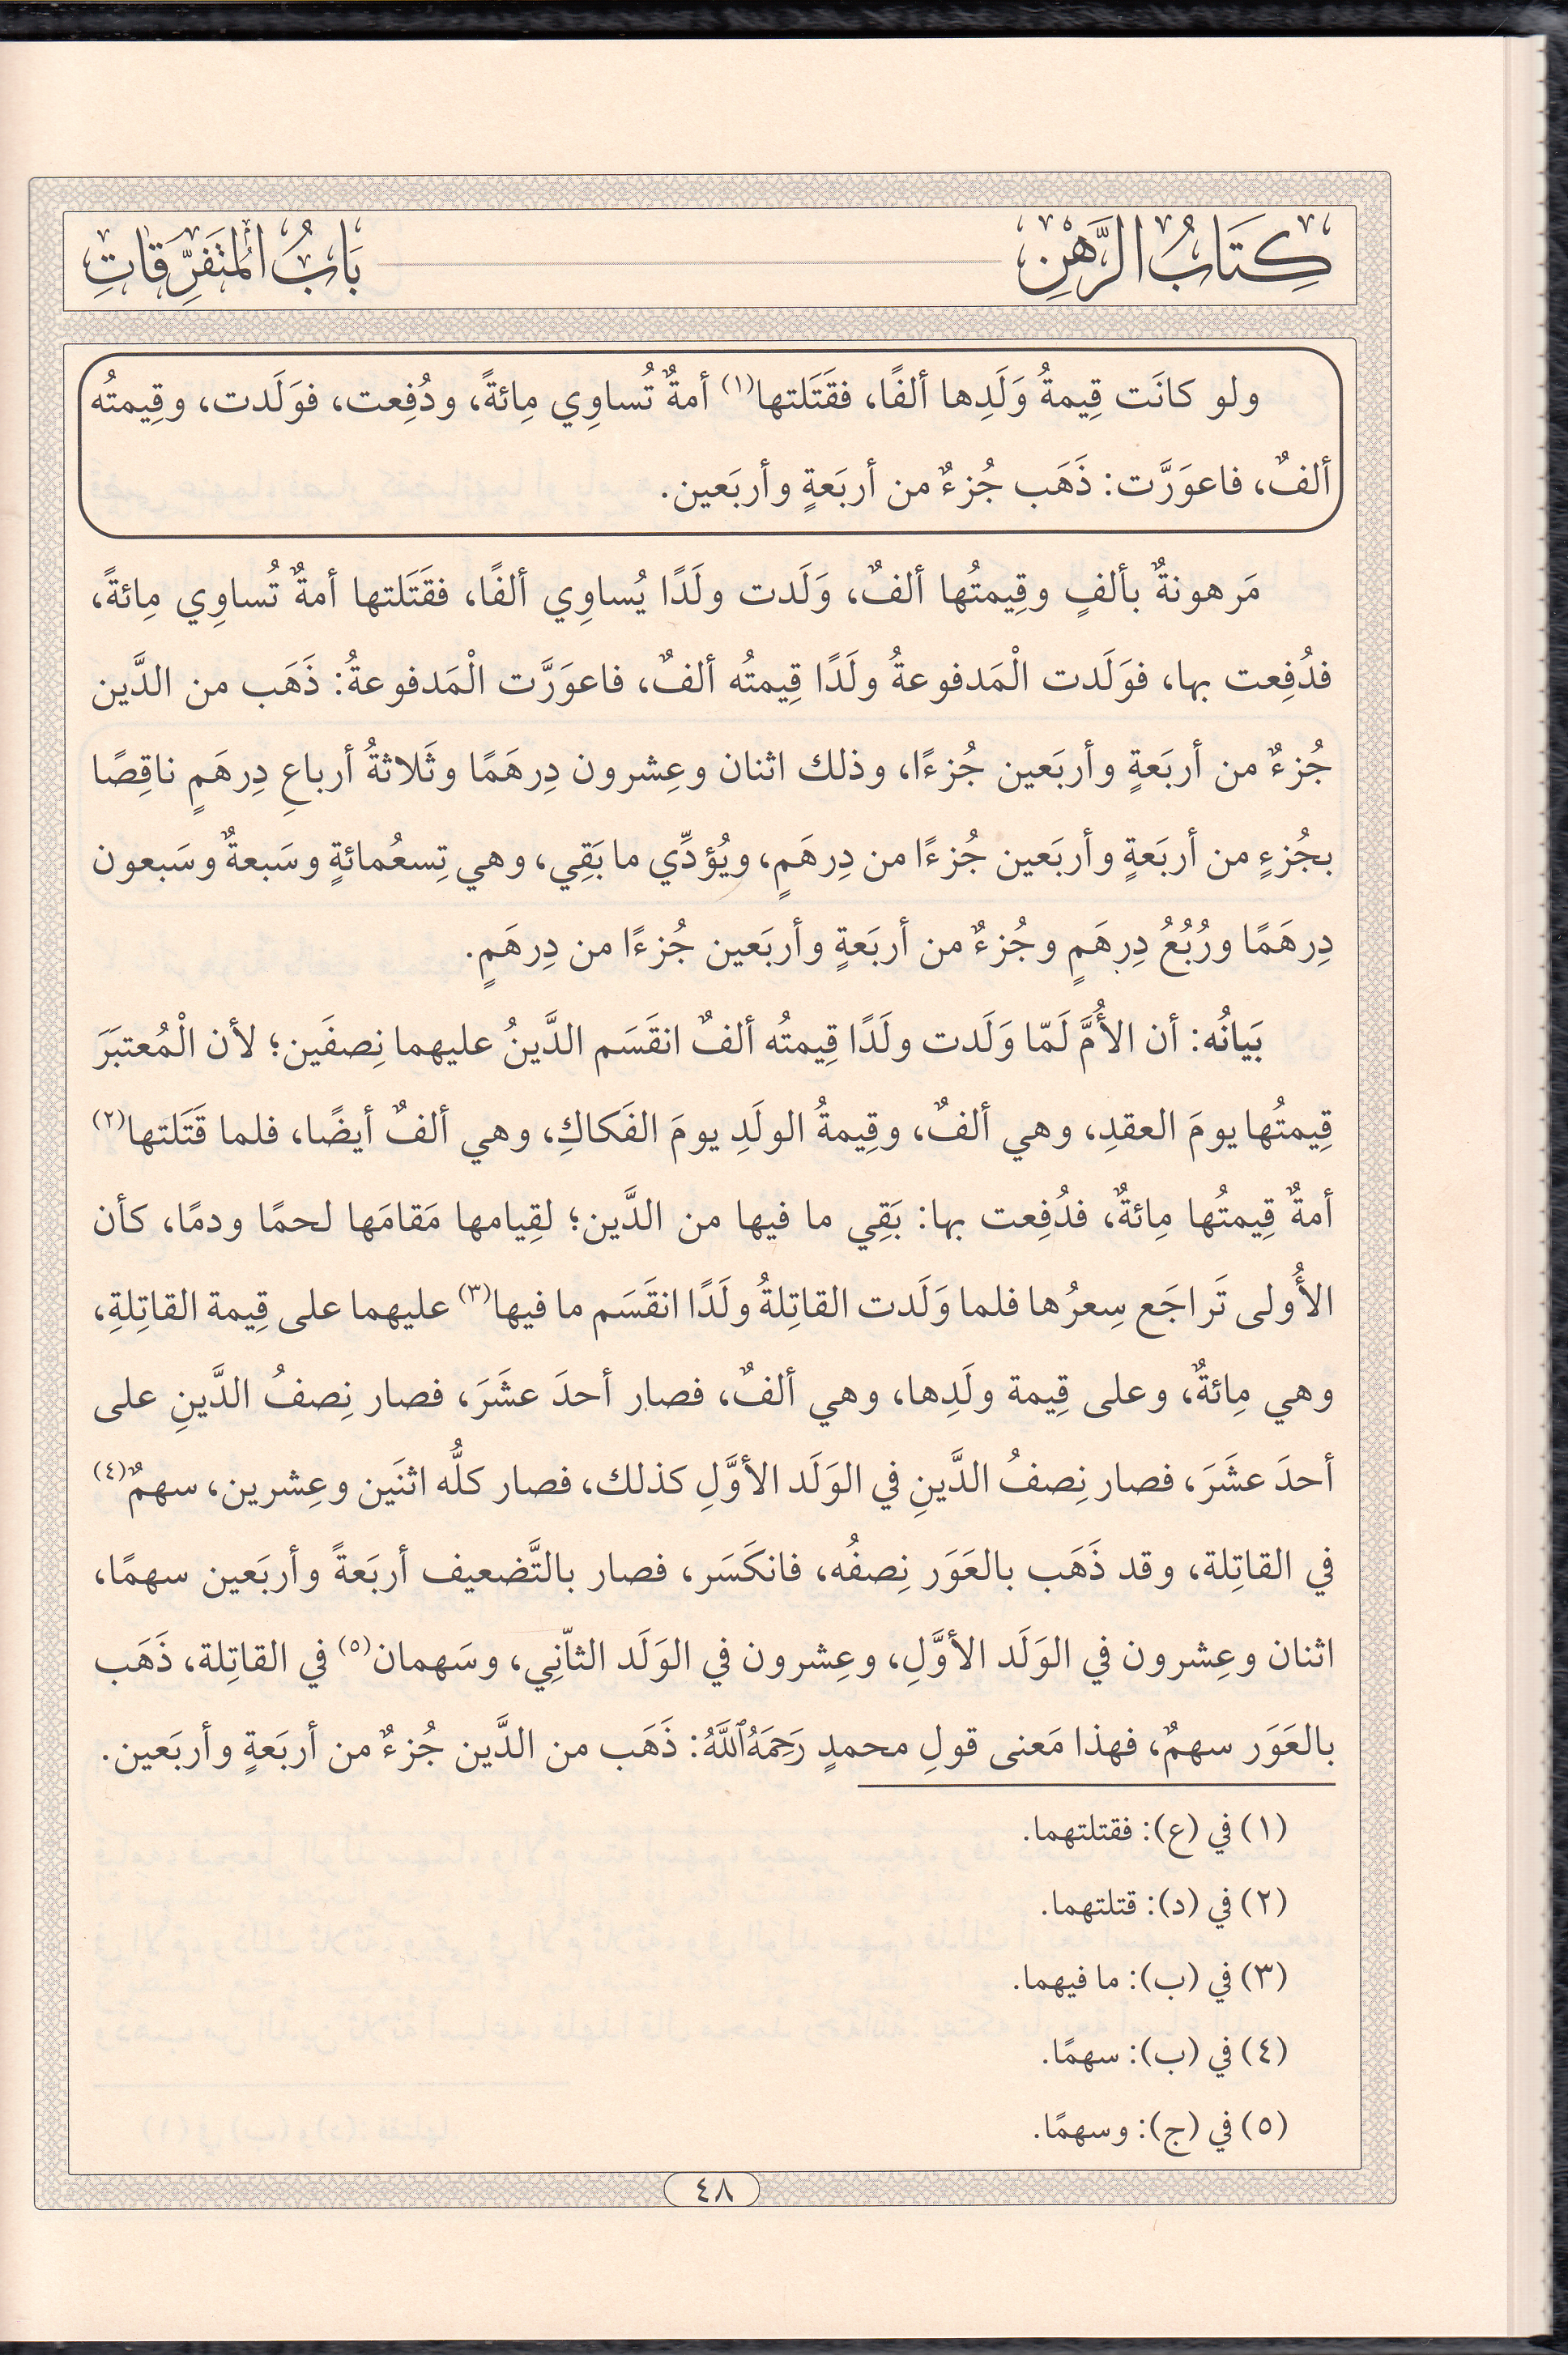 كِتَابُ الرَّهْنِ
بَابُ الْمُتَفَرِّقَاتِ
ولو كانَت قِيمةُ وَلَدِها ألفًا، فقَتَلتها(١) أمةٌ تُساوِي مِائةً، ودُفِعت، فوَلَدت، وقِيمتُه
ألفٌ، فاعوَرَّت: ذَهَب جُزءٌ من أربَعةٍ وأربَعين.
مَرهونةٌ بألفٍ وقِيمتُها ألفٌ، وَلَدت ولَدًا يُساوِي ألفًا، فقَتَلتها أمةٌ تُساوِي مِائةً،
فدُفِعت بها، فوَلَدت الْمَدفوعةُ ولَدًا قِيمتُه ألفٌ، فاعوَرَّت الْمَدفوعةُ: ذَهَب من الدَّين
جُزءٌ من أربَعةٍ وأربَعين جُزءًا، وذلك اثنان وعِشرون دِرهَمًا وثَلاثةُ أرباعِ دِرهَمٍ ناقِصًا
بجُزءٍ من أربَعةٍ وأربَعين جُزءًا من دِرهَمٍ، ويُؤدِّي ما بَقِي، وهي تِسعُمائةٍ وسَبعةٌ وسَبعون
دِرهَمًا ورُبُعُ دِرهَمٍ وجُزءٌ من أربَعةٍ وأربَعين جُزءًا من دِرهَمٍ.
بَيانُه: أن الأُمَّ لَمّا وَلَدت ولَدًا قِيمتُه ألفٌ انقَسَم الدَّينُ عليهما نِصفَين؛ لأن الْمُعتبَرَ
قِيمتُها يومَ العقدِ، وهي ألفٌ، وقِيمةُ الولَدِ يومَ الفَكاكِ، وهي ألفٌ أيضًا، فلما قَتَلتها(٢)
أمةٌ قِيمتُها مِائةٌ، فدُفِعت بها: بَقِي ما فيها من الدَّين؛ لقِيامها مَقامَها لحمًا ودمًا، كأن
الأُولى تَراجَع سِعرُها فلما وَلَدت القاتِلةُ ولَدًا انقَسَم ما فيها(٣) عليهما على قِيمة القاتِلةِ،
وهي مِائةٌ، وعلى قِيمة ولَدِها، وهي ألفٌ، فصار أحدَ عشَرَ، فصار نِصفُ الدَّينِ على
أحدَ عشَرَ، فصار نِصفُ الدَّينِ في الوَلَد الأوَّلِ كذلك، فصار كلُّه اثنَين وعِشرين، سهمٌ(٤)
في القاتِلة، وقد ذَهَب بالعَوَر نِصفُه، فانكَسَر، فصار بالتَّضعيف أربَعةً وأربَعين سهمًا،
اثنان وعِشرون في الوَلَد الأوَّلِ، وعِشرون في الوَلَد الثاّنِي، وسَهمان(٥) في القاتِلة، ذَهَب
بالعَوَر سهمٌ، فهذا مَعنى قولِ محمدٍ رَحِمَهُ ٱللَّهُ: ذَهَب من الدَّين جُزءٌ من أربَعةٍ وأربَعين.
(١) في (ع): فقتلتهما.
(٢) في (د): قتلتهما.
(٣) في (ب): ما فيهما.
(٤) في (ب): سهمًا.
(٥) في (ج): وسهمًا.
٤٨